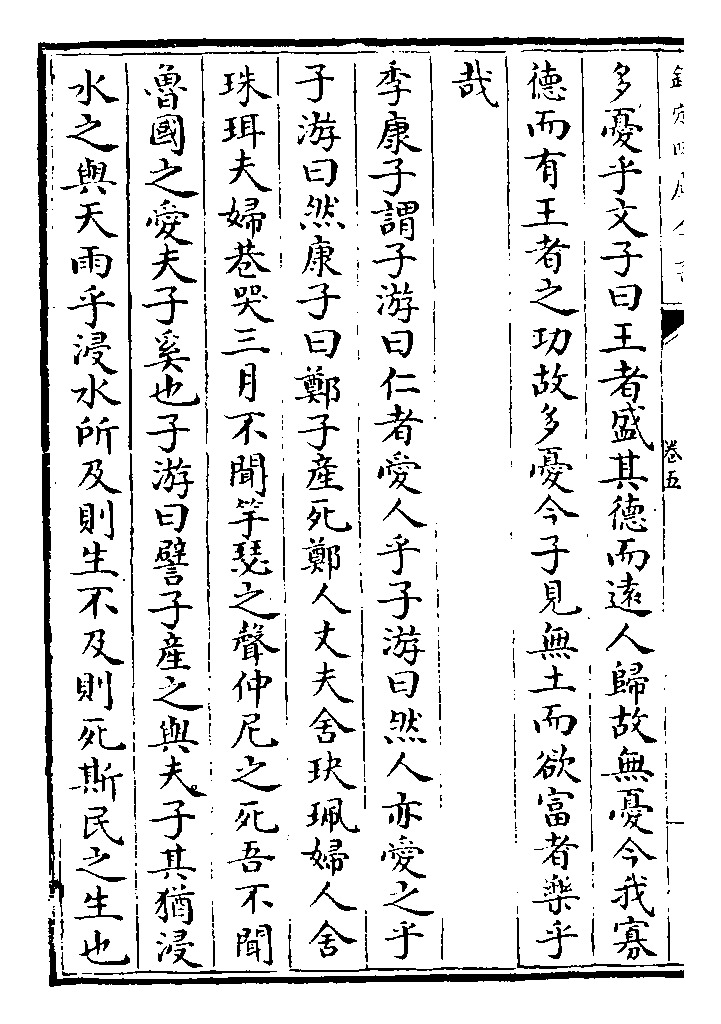 欽定四庫全書
卷五
多憂乎文子曰王者盛其德而遠人歸故無憂今我寡
德而有王者之功故多憂今子見無土而欲富者樂乎
哉
季康子謂子游曰仁者愛人乎子游曰然人亦愛之乎
子游曰然康子曰鄭子產死鄭人丈夫舍玦珮婦人舍
珠珥夫婦巷哭三月不聞竽瑟之聲仲尼之死吾不聞
魯國之愛夫子奚也子游曰譬子產之與夫子其猶浸
水之與天雨乎浸水所及則生不及則死斯民之生也